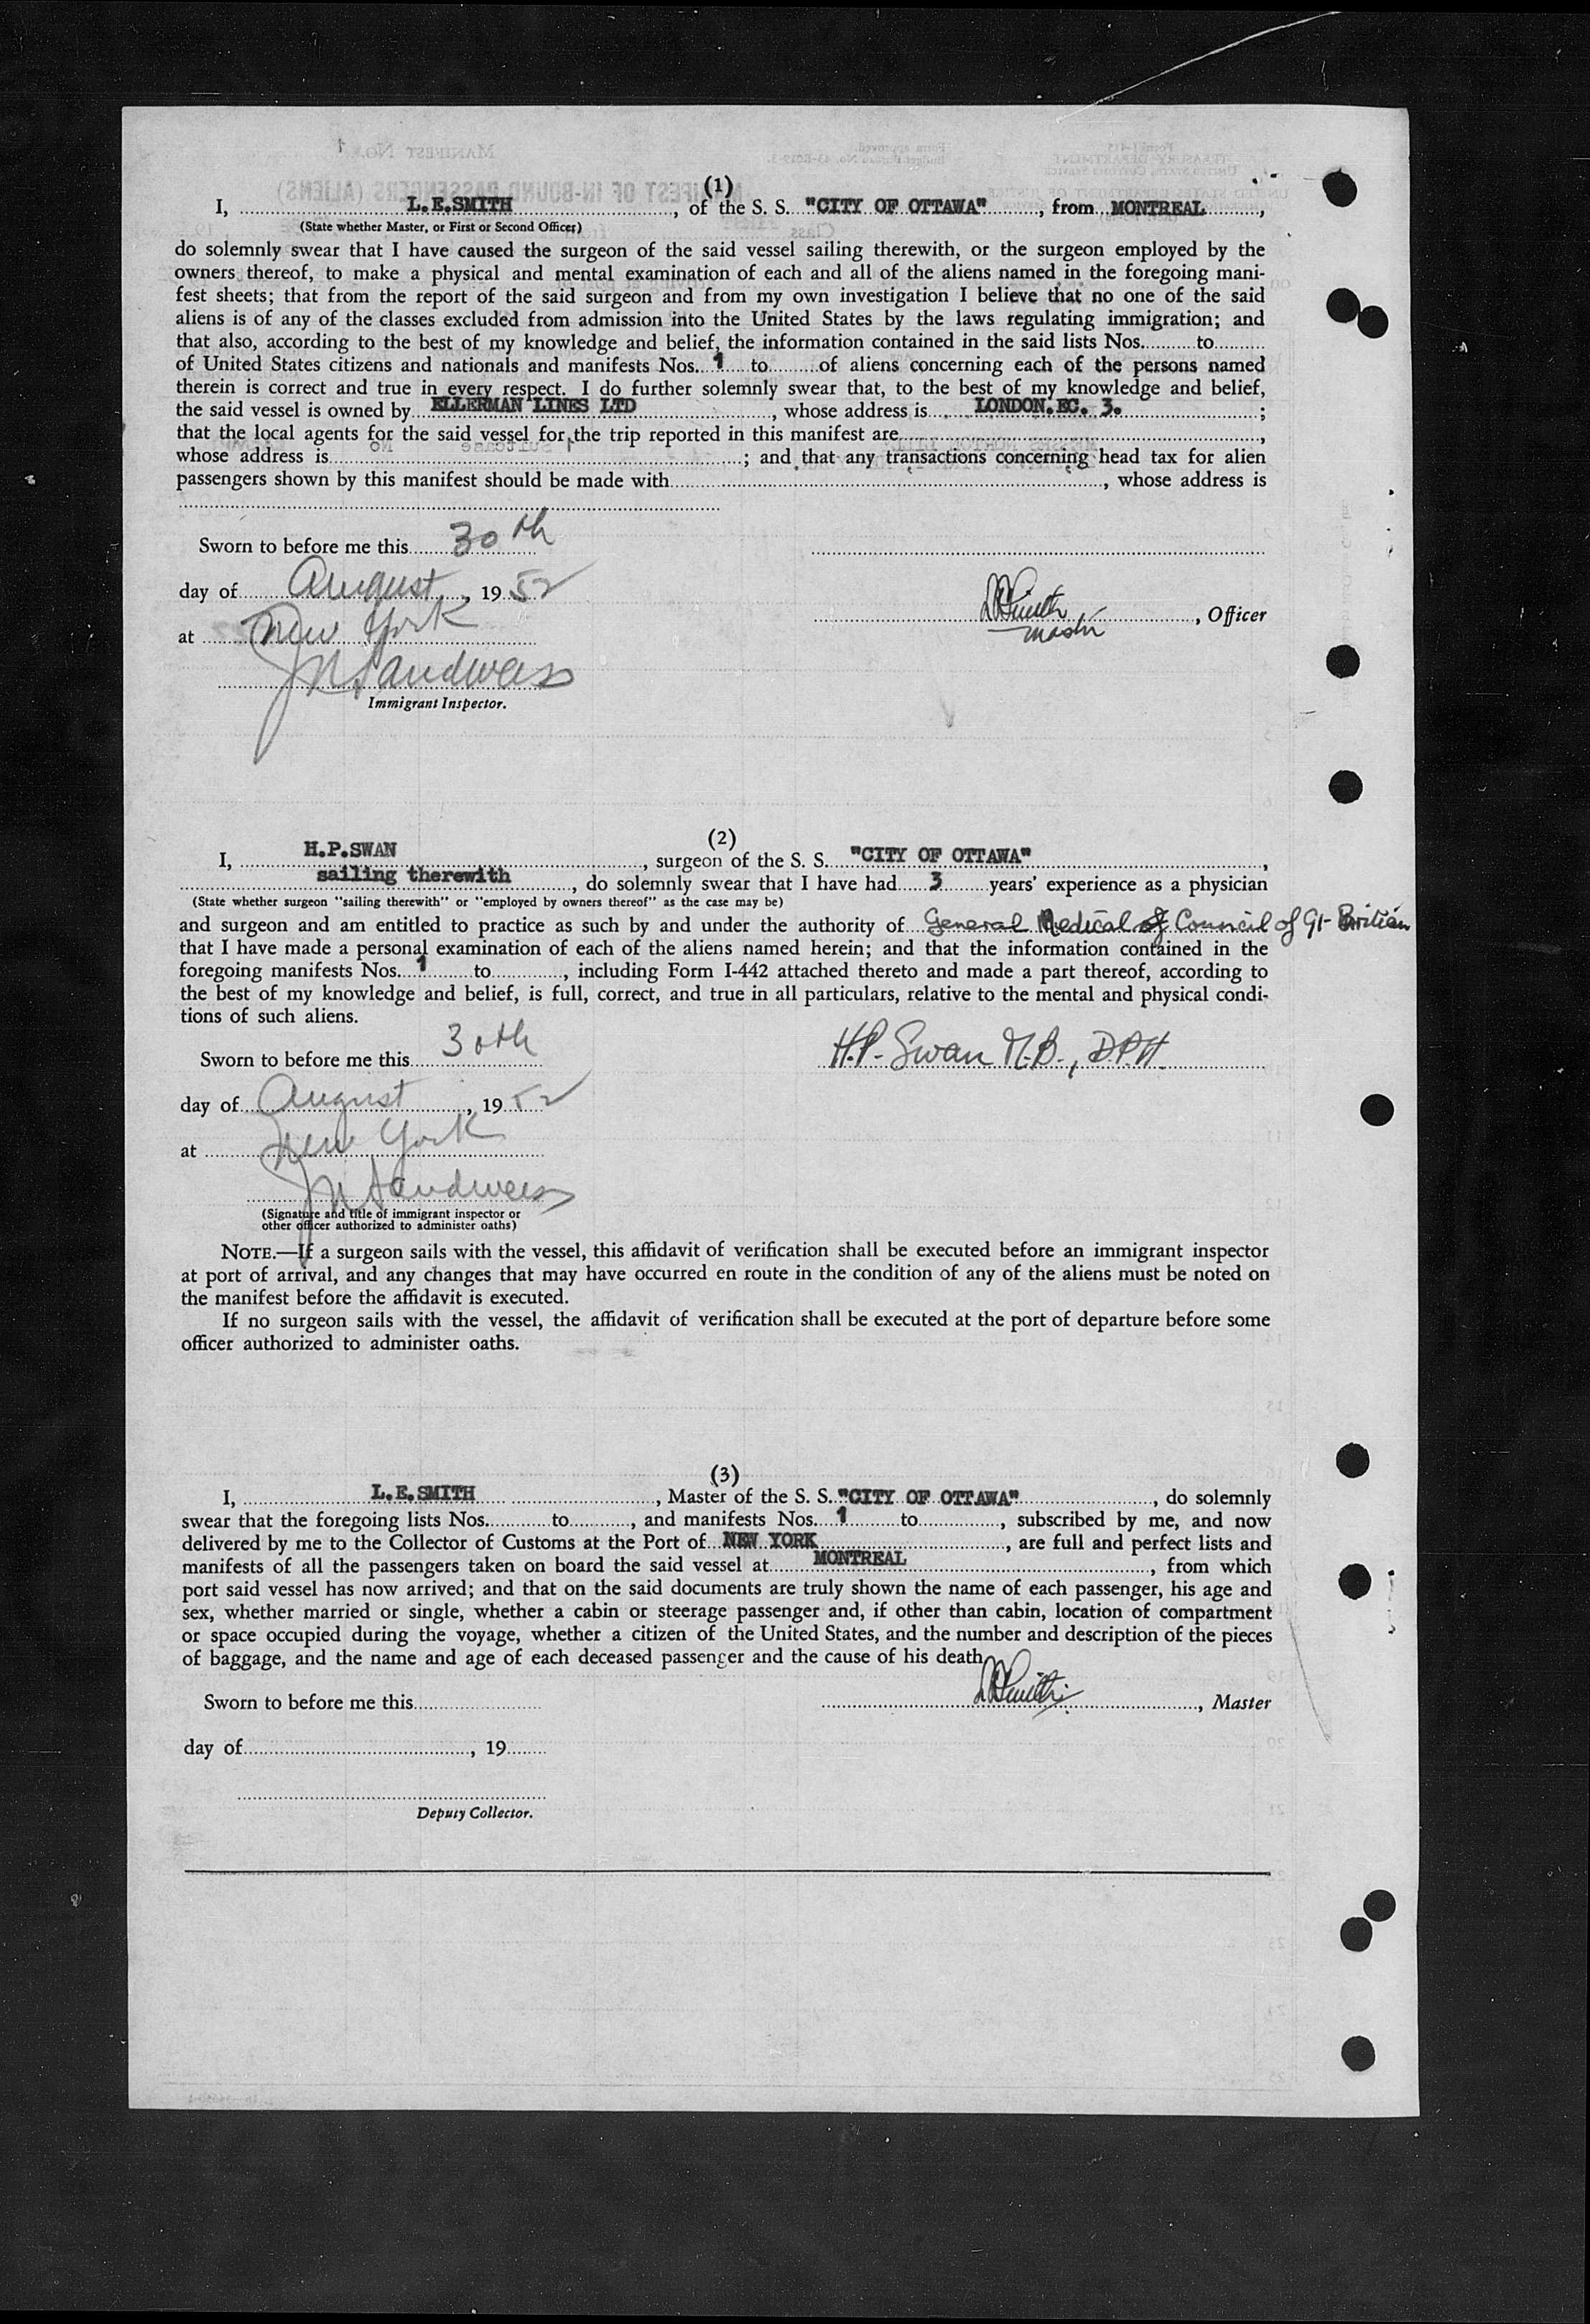 (1)
I, L.E.SMITH, of the S. S. "CITY OF OTTAWA", from MONTREAL,
(State whether Master, or First or Second Officer)
do solemnly swear that I have caused the surgeon of the said vessel sailing therewith, or the surgeon employed by the
owners thereof, to make a physical and mental examination of each and all of the aliens named in the foregoing mani-
fest sheets; that from the report of the said surgeon and from my own investigation I believe that no one of the said
aliens is of any of the classes excluded from admission into the United States by the laws regulating immigration; and
that also, according to the best of my knowledge and belief, the information contained in the said lists Nos. to
of United States citizens and nationals and manifests Nos. 1 to of aliens concerning each of the persons named
therein is correct and true in every respect. I do further solemnly swear that, to the best of my knowledge and belief,
the said vessel is owned by ELLERMAN LINES LTD, whose address is LONDON.EC. 3.;
that the local agents for the said vessel for the trip reported in this manifest are,
whose address is; and that any transactions concerning head tax for alien
passengers shown by this manifest should be made with, whose address is
Sworn to before me this 30th
day of August, 1952
at New York
JN Sandweiss
Immigrant Inspector.
Smith, Officer
Master
(2)
I, H.P.SWAN, surgeon of the S. S. "CITY OF OTTAWA",
sailing therewith, do solemnly swear that I have had 3 years' experience as a physician
(State whether surgeon "sailing therewith" or "employed by owners thereof" as the case may be)
and surgeon and am entitled to practice as such by and under the authority of General Medical of Council of Gt-
that I have made a personal examination of each of the aliens named herein; and that the information contained in the
foregoing manifests Nos. 1 to, including Form I-442 attached thereto and made a part thereof, according to
the best of my knowledge and belief, is full, correct, and true in all particulars, relative to the mental and physical condi-
tions of such aliens.
Sworn to before me this 30th
H.P. Swan M.B., D.P.H.
day of August, 1952
at New York
JN Sandweiss
(Signature and title of immigrant inspector or
other officer authorized to administer oaths)
NOTE.—If a surgeon sails with the vessel, this affidavit of verification shall be executed before an immigrant inspector
at port of arrival, and any changes that may have occurred en route in the condition of any of the aliens must be noted on
the manifest before the affidavit is executed.
If no surgeon sails with the vessel, the affidavit of verification shall be executed at the port of departure before some
officer authorized to administer oaths.
(3)
I, L.E.SMITH, Master of the S. S. "CITY OF OTTAWA", do solemnly
swear that the foregoing lists Nos. to, and manifests Nos. 1 to, subscribed by me, and now
delivered by me to the Collector of Customs at the Port of NEW YORK, are full and perfect lists and
manifests of all the passengers taken on board the said vessel at MONTREAL, from which
port said vessel has now arrived; and that on the said documents are truly shown the name of each passenger, his age and
sex, whether married or single, whether a cabin or steerage passenger and, if other than cabin, location of compartment
or space occupied during the voyage, whether a citizen of the United States, and the number and description of the pieces
of baggage, and the name and age of each deceased passenger and the cause of his death
Sworn to before me this
Smith, Master
day of, 19
Deputy Collector.